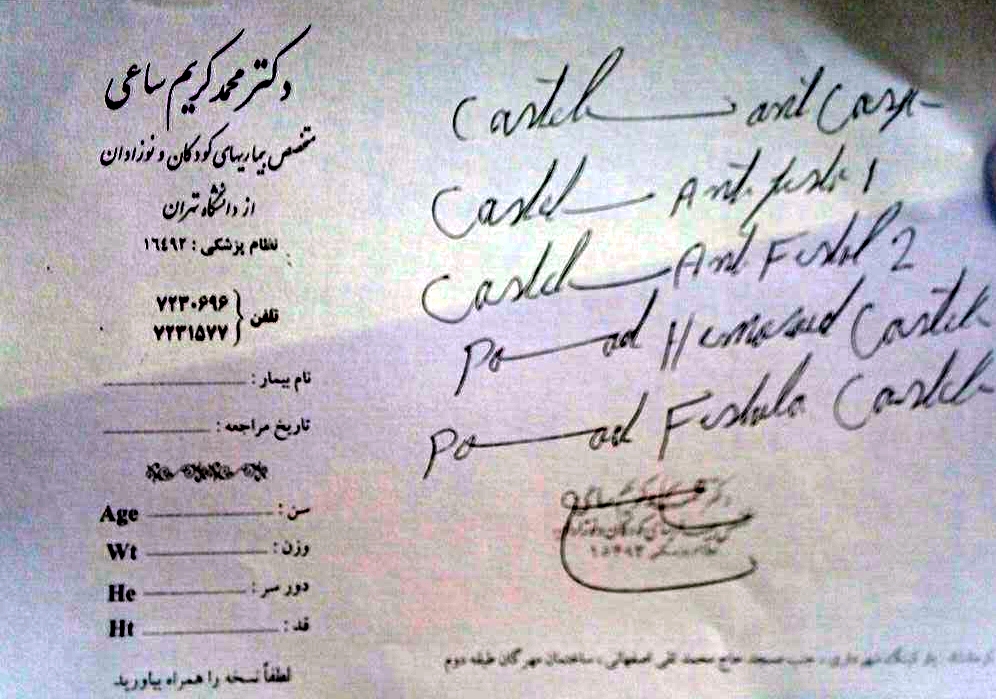 دکتر محمد کریم ساعی
متخصص بیماریهای کودکان و نوزادان
از دانشگاه تهران
نظام پزشکی : ۱٦٤٩٢
تلفن
۷۲۳۰۶۹۶
۷۲۳۱۵۷۷
نام بیمار :
تاریخ مراجعه :
Age سن :
Wt وزن :
He دور سر :
Ht قد :
لطفاً نسخه را همراه بیاورید
Castel
Castel Anti 1
Castel Anti Fistol 2
Pomad Castel
Pomad Fistula Castel
جنب مسجد حاج محمد تقی اصفهانی ، ساختمان مهرگان طبقه دوم